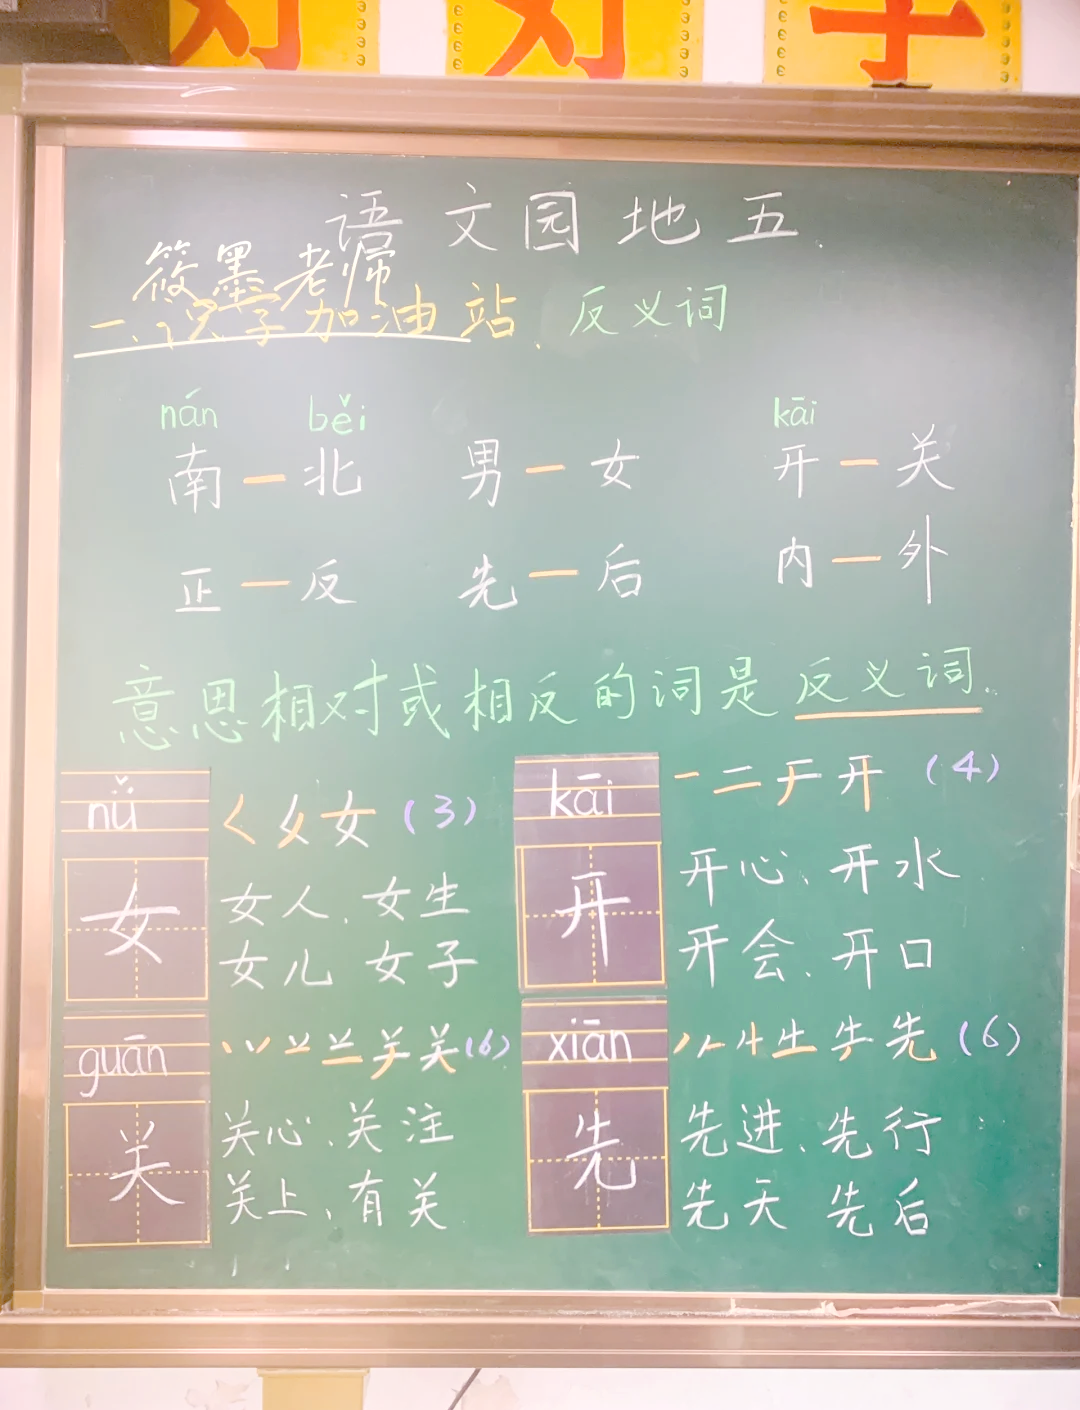 语文园地五
筱墨老师
一、识字加油站 反义词
nán běi kāi
南—北 男—女 开—关
正—反 先—后 内—外
意思相对或相反的词是反义词。
nǚ 女 (3)
女
女人、女生
女儿 女子
kāi 一 二 开 (4)
开
开心、开水
开会、开口
guān 丶 丷 关 (6)
关
关心、关注
关上、有关
xiān 丿 先 (6)
先
先进、先行
先天 先后